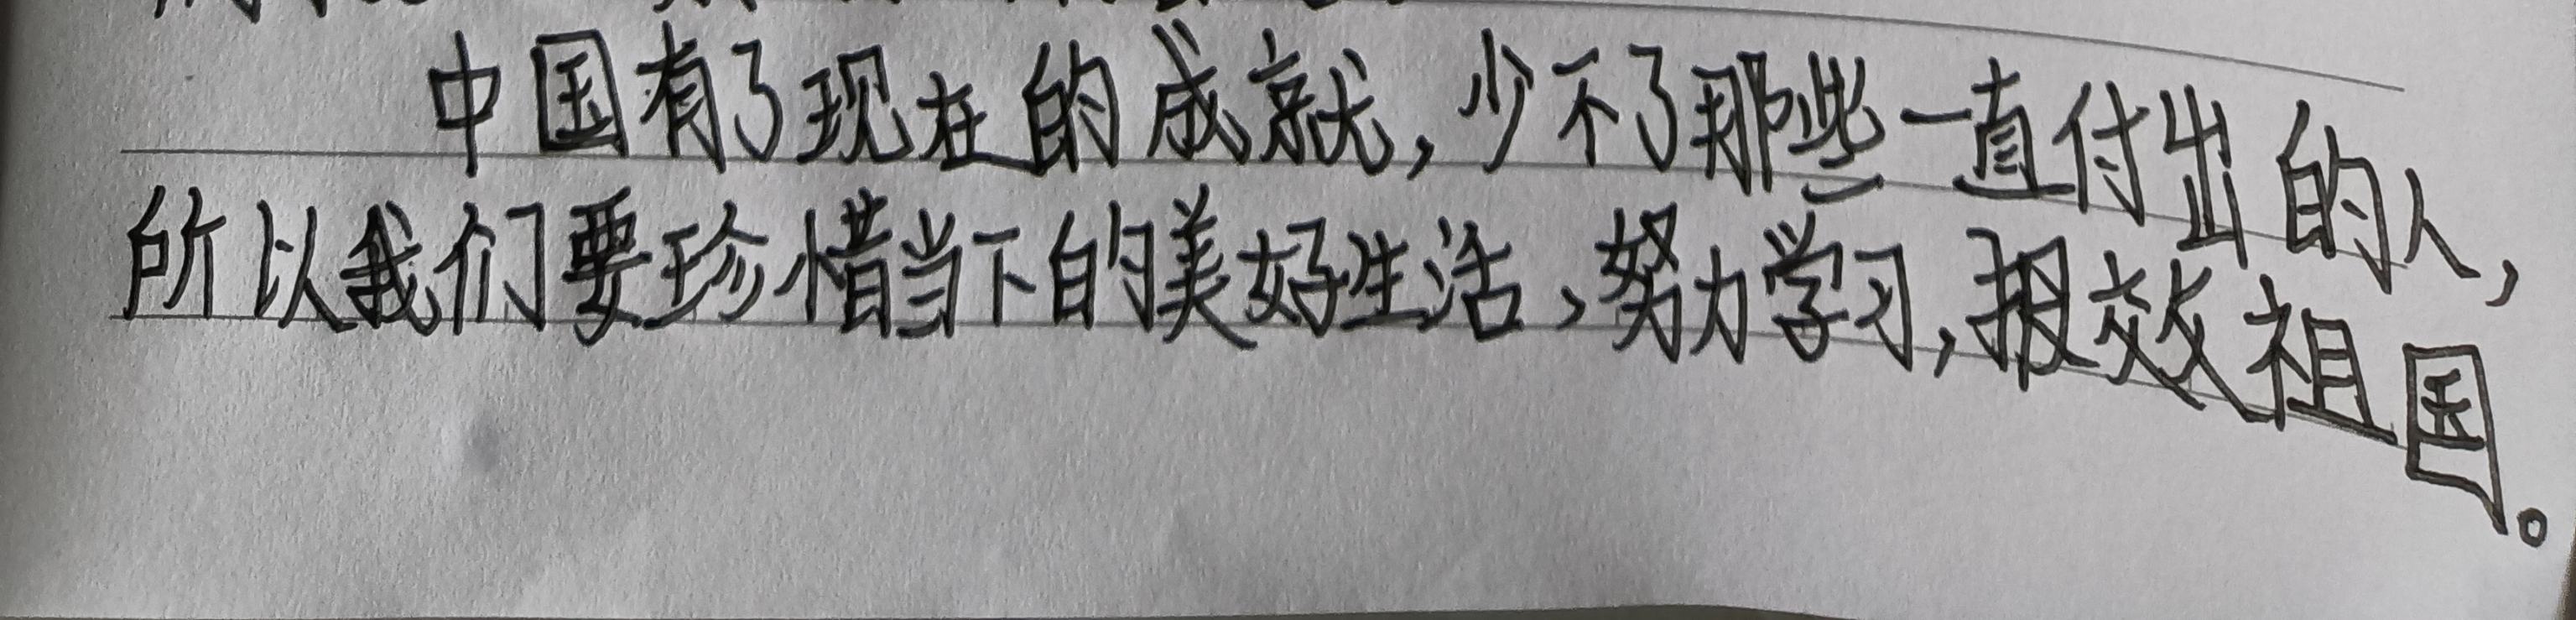 中国有了现在的成就，少不了那些一直付出的人，
所以我们要珍惜当下的美好生活，努力学习，报效祖国。